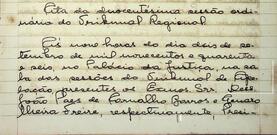 Ata da ducentésima sessão ordi-
nária do Tribunal Regional
Às nove horas do dia dois de se-
tembro de mil novecentos e quarenta
e seis, no Palácio da Justiça, na sa-
la das sessões do Tribunal de Ape-
lação, presentes os Exmos. Srs. Des.
João Paes de Carvalho Barros e Genaro
Freire, respectivamente, Presi-